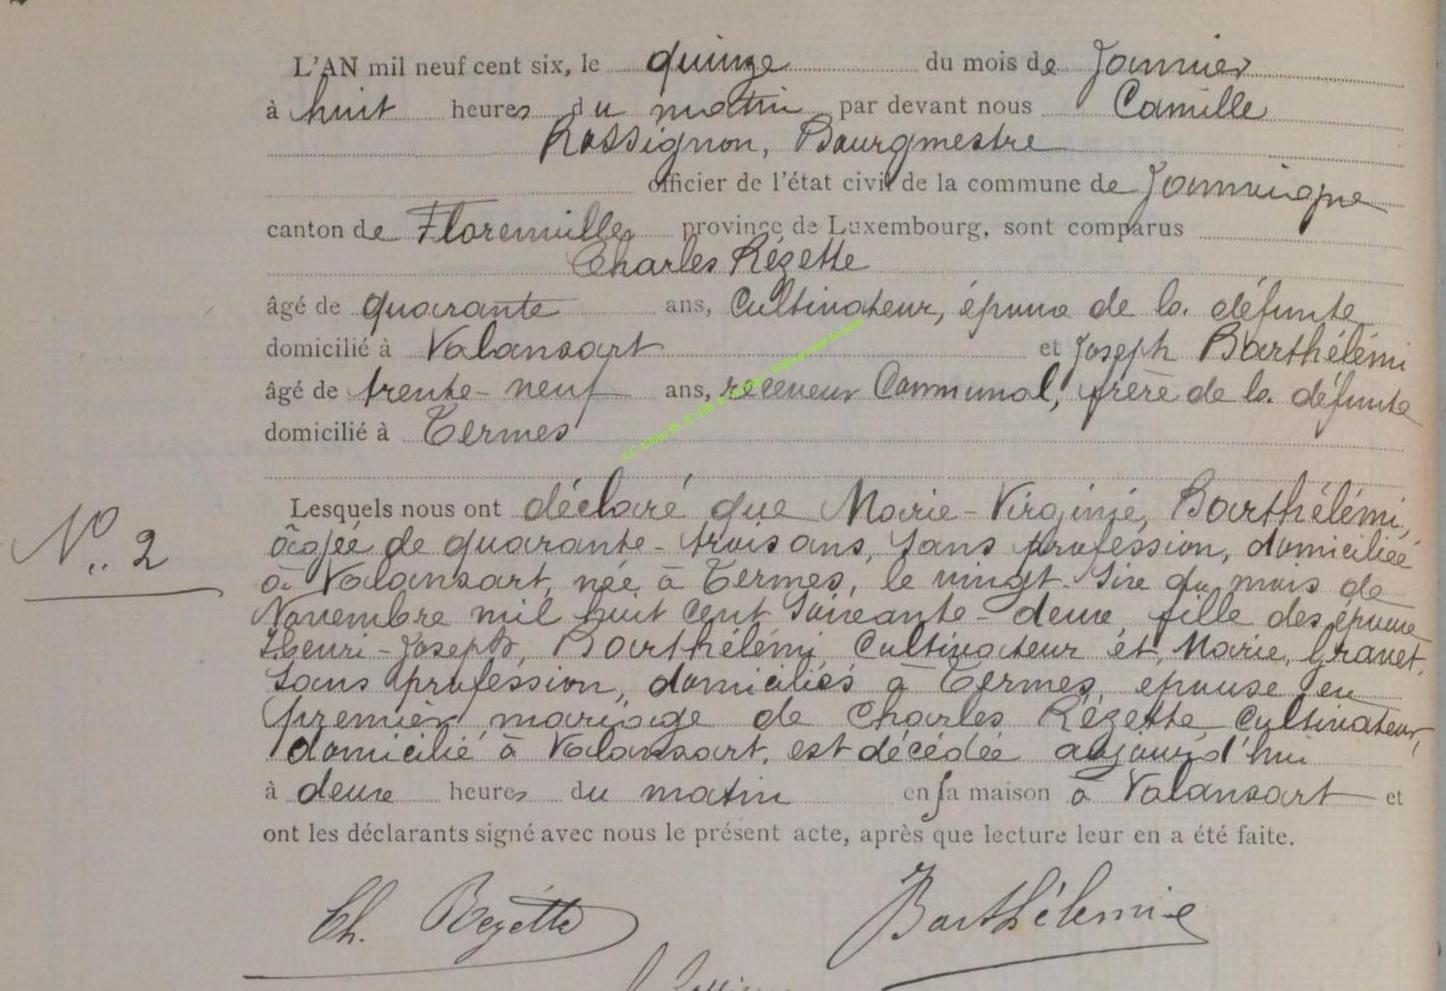 L'AN mil neuf cent six, le quinze du mois de Janvier
à huit heures du matin par devant nous Camille
Rossignon, Bourgmestre
officier de l'état civil de la commune de Jamoigne
canton de Florenville province de Luxembourg, sont comparus
Charles Rézette
âgé de quarante ans, Cultivateur, époux de la défunte
domicilié à Valansart et Joseph Barthélémi
âgé de trente-neuf ans, receveur Communal, frère de la défunte
domicilié à Termes
Lesquels nous ont déclaré que Marie-Virginie, Barthélémi,
N° 2
âgée de quarante-trois ans, Sans profession, domiciliée
à Valansart, née à Termes, le vingt-Six du mois de
Novembre mil huit cent Soixante-deux, fille des époux
Henri-Joseph, Barthélémi, Cultivateur et, Marie, Gravet,
Sans profession, domiciliés à Termes, epouse en
premier mariage de Charles Rézette Cultivateur,
domicilié à Valansart, est décédée aujourd'hui
à deux heures du matin en sa maison à Valansart et
ont les déclarants signé avec nous le présent acte, après que lecture leur en a été faite.
Ch. Rezette Barthélemie